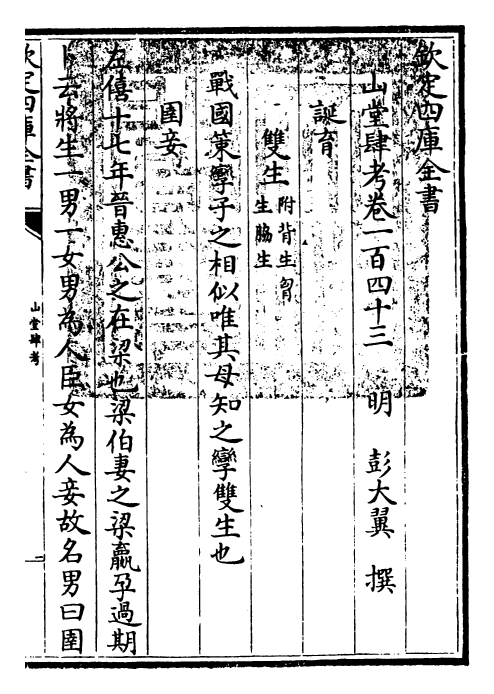 欽定四庫全書
山堂肆考卷一百四十三
明 彭大翼 撰
誕育
雙生 附背生胷生脇生
戰國策孿子之相似唯其母知之孿雙生也
圉妾
左僖十七年晉惠公之在梁也梁伯妻之梁嬴孕過期
卜云將生一男一女男為人臣女為人妾故名男曰圉
欽定四庫全書
山堂肆考